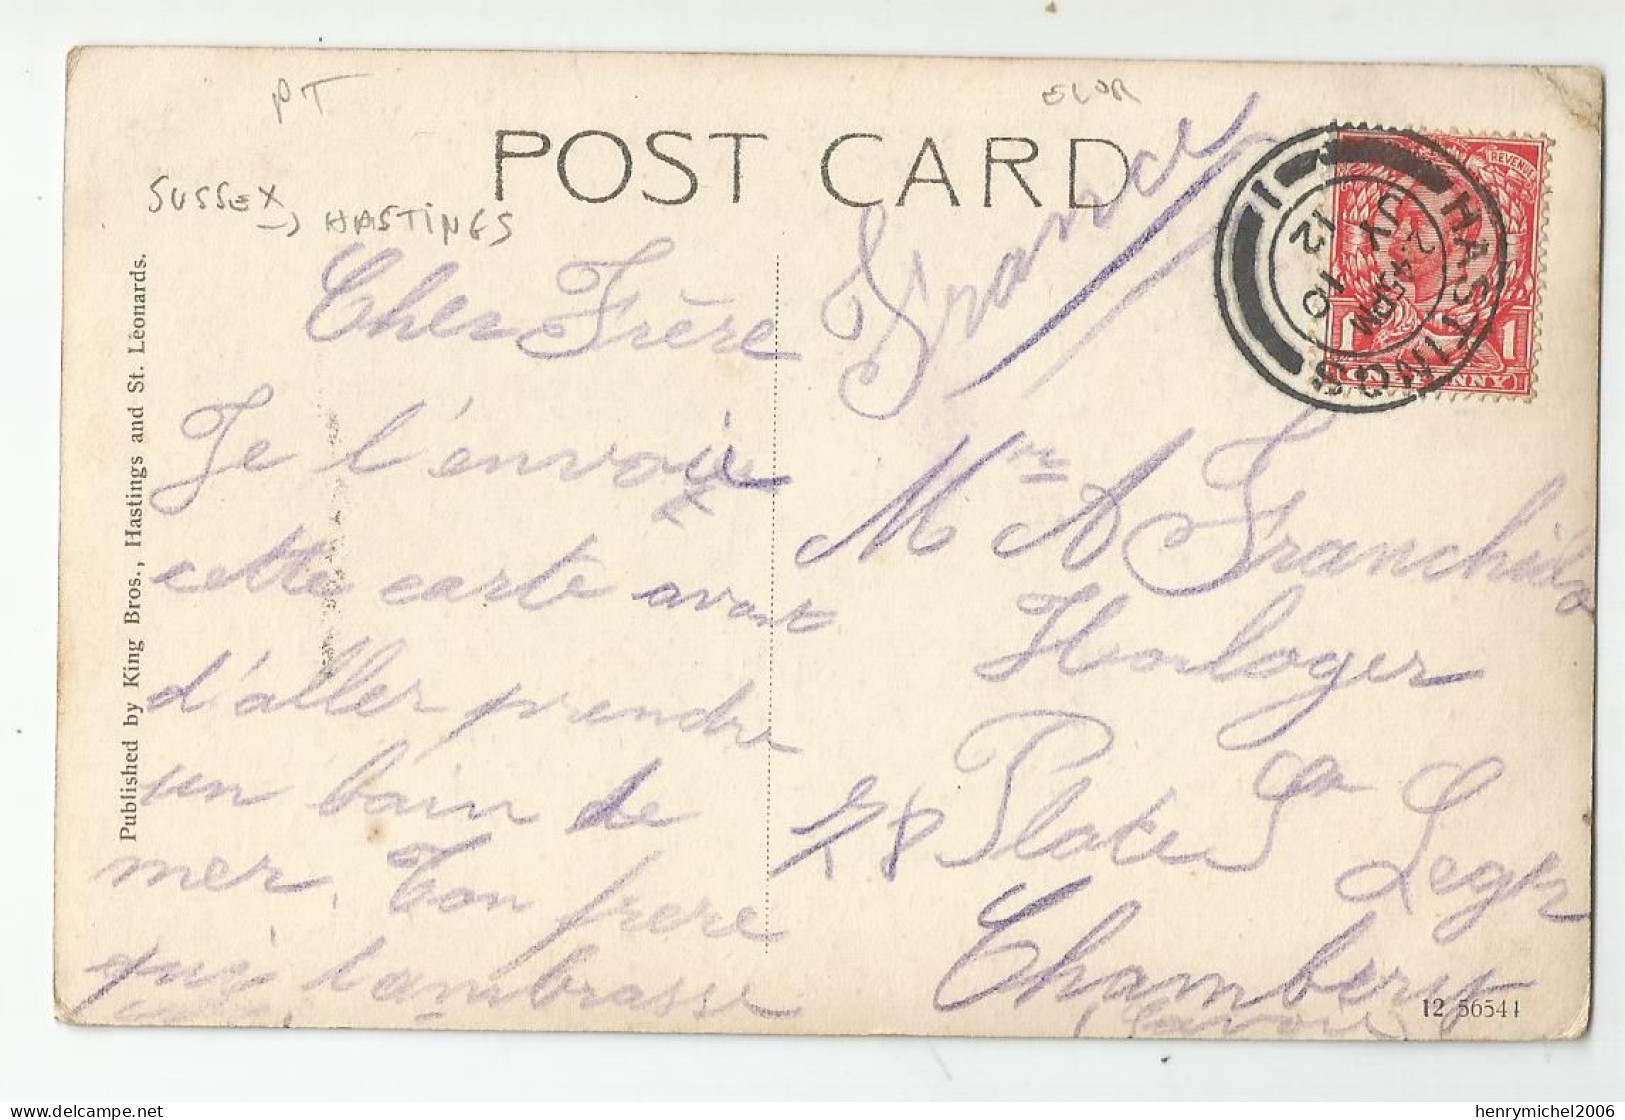 PT
ELOR
POST CARD
SUSSEX
HASTINGS
Published by King Bros., Hastings and St. Leonards.
France
HASTINGS
2.45PM
JY 10
12
REVENUE
1 1
ONE PENNY
Cher Frère
Je t'envoie
cette carte avant
d'aller prendre
un bain de
mer. Ton frere
qui t'ambrasse
Mr A
Horloger
28 Place St Leger
Chambery
Savoie
12 56544
henrymichel2006